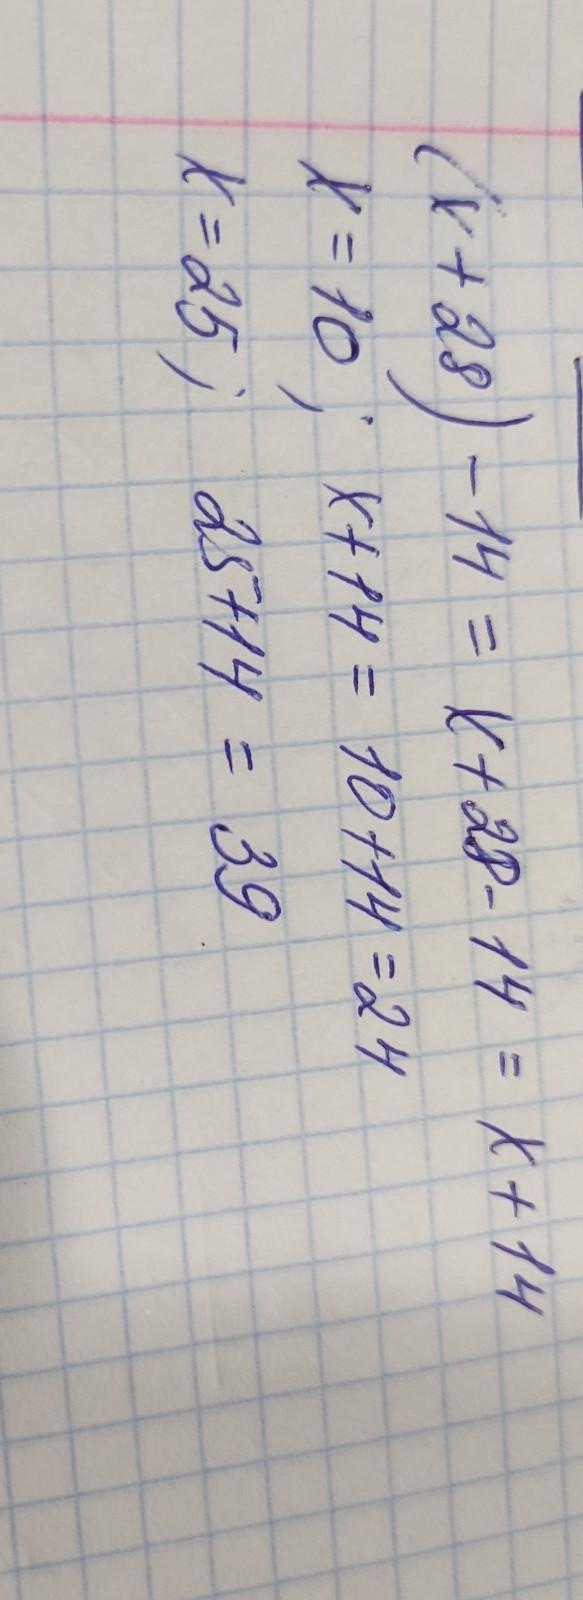 (x+28)-14 = x+28-14 = x+14
x=10; x+14 = 10+14 =24
x=25; 25+14 = 39